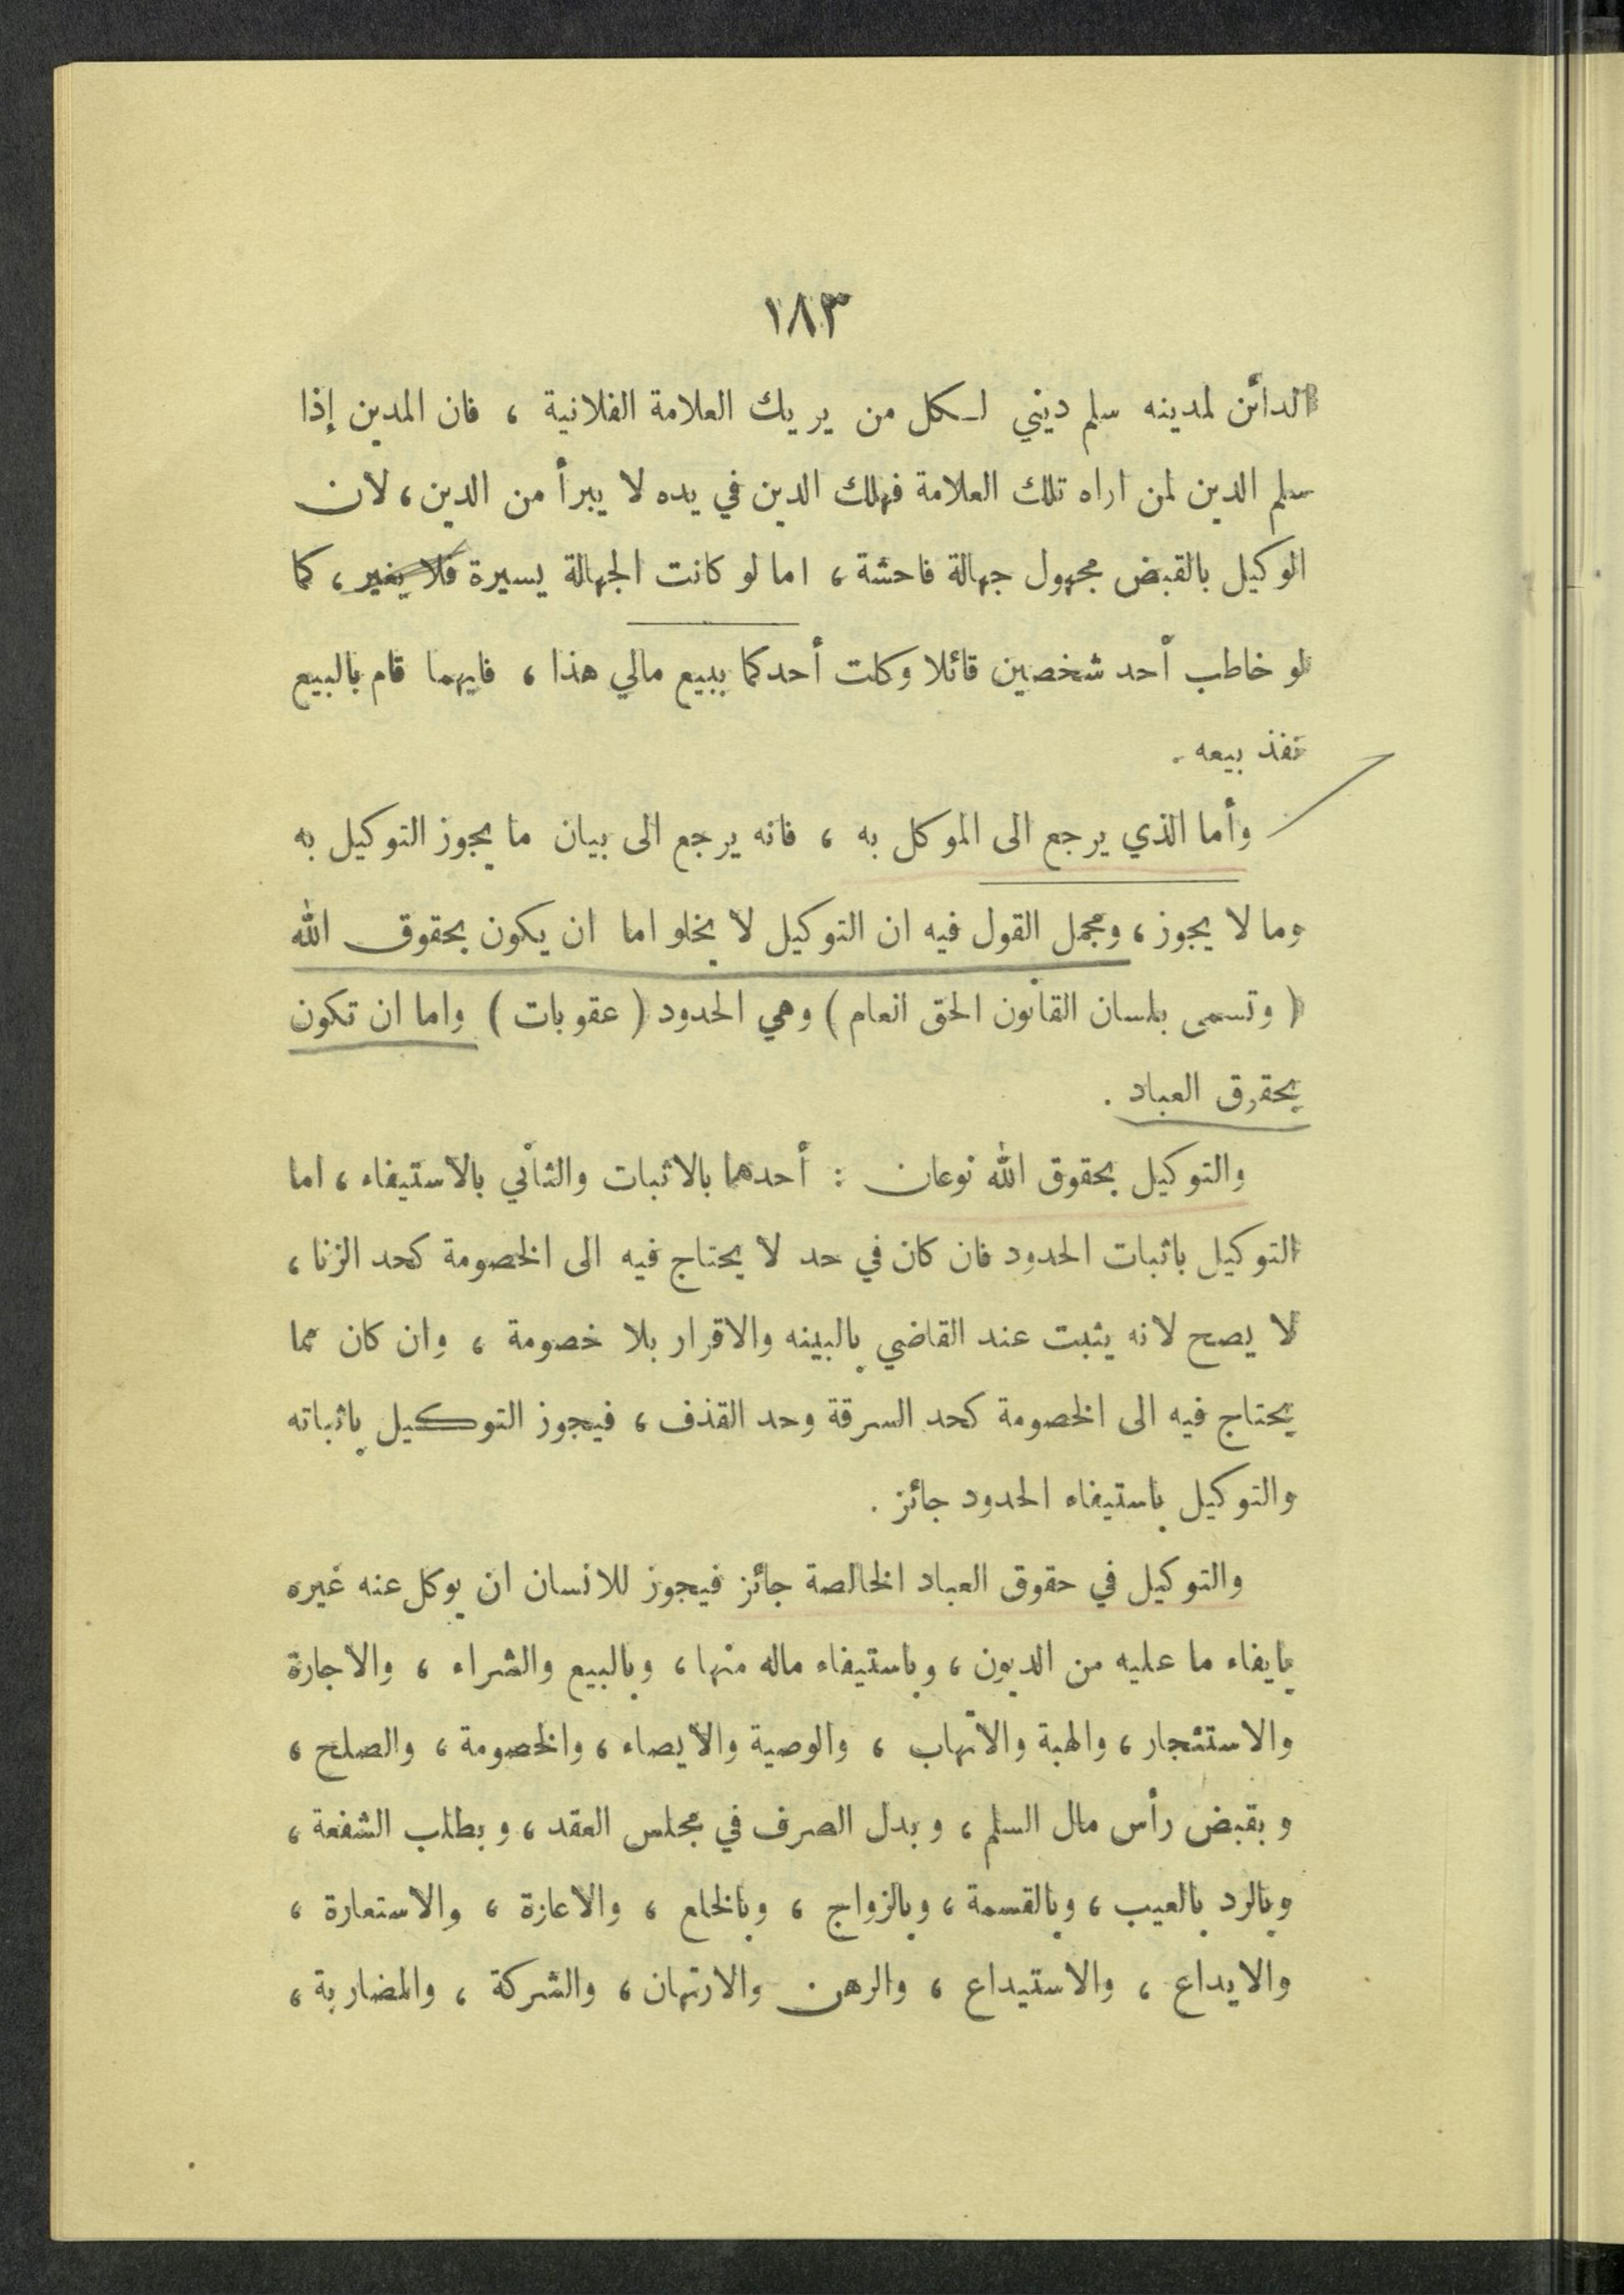 ١٨٣
الدائن لمدينه سلم ديني لكل من يريك العلامة الفلانية ، فان المدين إذا
سلم الدين لمن اراه تلك العلامة فهلك الدين في يده لا يبرأ من الدين ، لان
الوكيل بالقبض مجهول جهالة فاحشة ، اما لو كانت الجهالة يسيرة فلا يغير ، كما
لو خاطب أحد شخصين قائلا وكلت أحدكما ببيع مالي هذا ، فايهما قام بالبيع
نفذ بيعه .
وأما الذي يرجع الى الموكل به ، فانه يرجع الى بيان ما يجوز التوكيل به
وما لا يجوز ، ومجمل القول فيه ان التوكيل لا يخلو اما ان يكون بحقوق الله
( وتسمى بلسان القانون الحق العام ) وهي الحدود ( عقوبات ) واما ان تكون
بحقوق العباد .
والتوكيل بحقوق الله نوعان : أحدهما بالاثبات والثاني بالاستيفاء ، اما
التوكيل باثبات الحدود فان كان في حد لا يحتاج فيه الى الخصومة كحد الزنا ،
لا يصح لانه يثبت عند القاضي بالبينه والاقرار بلا خصومة ، وان كان مما
يحتاج فيه الى الخصومة كحد السرقة وحد القذف ، فيجوز التوكيل باثباته
والتوكيل باستيفاء الحدود جائز .
والتوكيل في حقوق العباد الخالصة جائز فيجوز للانسان ان يوكل عنه غيره
بايفاء ما عليه من الديون ، وباستيفاء ماله منها ، وبالبيع والشراء ، والاجارة
والاستئجار ، والهبة والاتهاب ، والوصية والايصاء ، والخصومة ، والصلح ،
وبقبض رأس مال السلم ، وبدل الصرف في مجلس العقد ، وبطلب الشفعة ،
وبالرد بالعيب ، وبالقسمة ، وبالزواج ، وبالخلع ، والاعارة ، والاستعارة ،
والايداع ، والاستيداع ، والرهن والارتهان ، والشركة ، والمضاربة ،